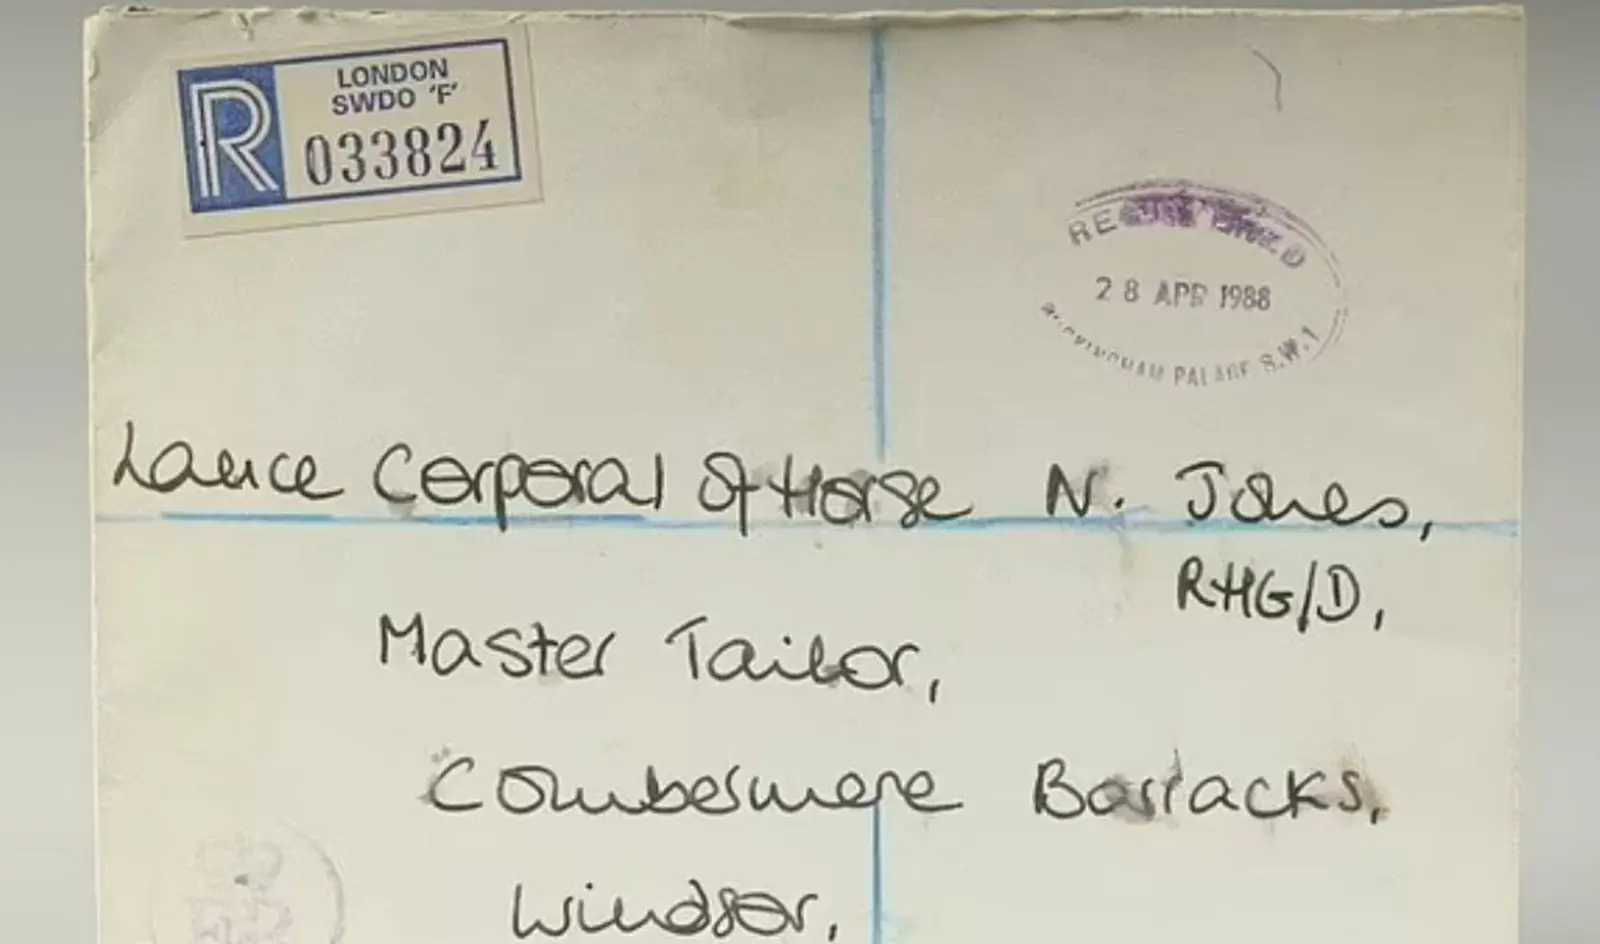 R
LONDON
SWDO 'F'
033824
28 APR 1988
BUCKINGHAM PALACE S.W.1
Lance Corporal Of Horse N. Jones,
RHG/D,
Master Tailor,
Combermere Barracks,
Windsor,